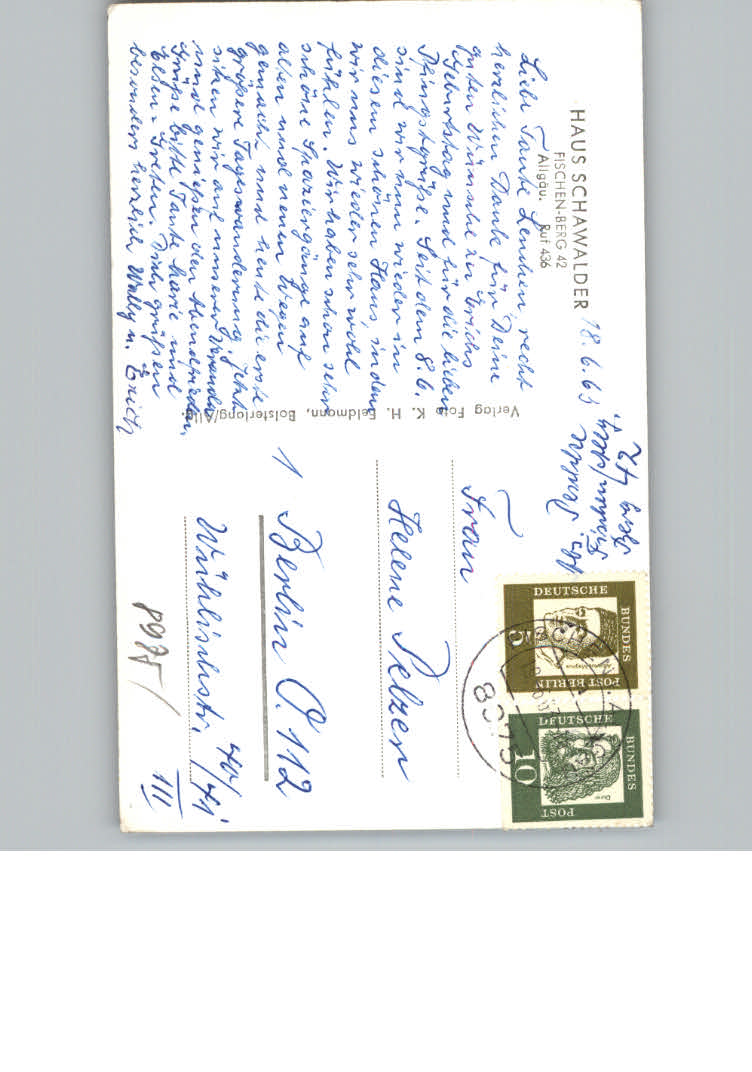 HAUS SCHAWALDER
FISCHEN-BERG 42
Allgäu. Ruf 436
18.6.63
Liebe Tante Lenchen, recht
herzlichen Dank für Deine
guten Wünsche zu Erichs
Geburtstag und für die lieben
Pfingstgrüße. Seit dem 8.6.
sind wir nun wieder in
diesem schönen Haus, in dem
wir uns wieder sehr wohl
fühlen. Wir haben schon sehr
schöne Spaziergänge auf
alten und neuen Wegen
gemacht und heute die erste
größere Tageswanderung. Jetzt
sitzen wir auf unserer Veranda
und genießen den Abendfrieden.
Grüße bitte Tante Marie und
Dich grüßen
besonders herzlich Wally u. Erich
Verlag Foto K. H. Feldmann, Bolsterlang/Allg.
Berg 42
Frau
Helene Pelzer
1 Berlin O. 112
Wühlischstr. 40/41
III
8975
DEUTSCHE
BUNDES
POST BERLIN
5
DEUTSCHE
BUNDES
POST
10
Dürer
8975